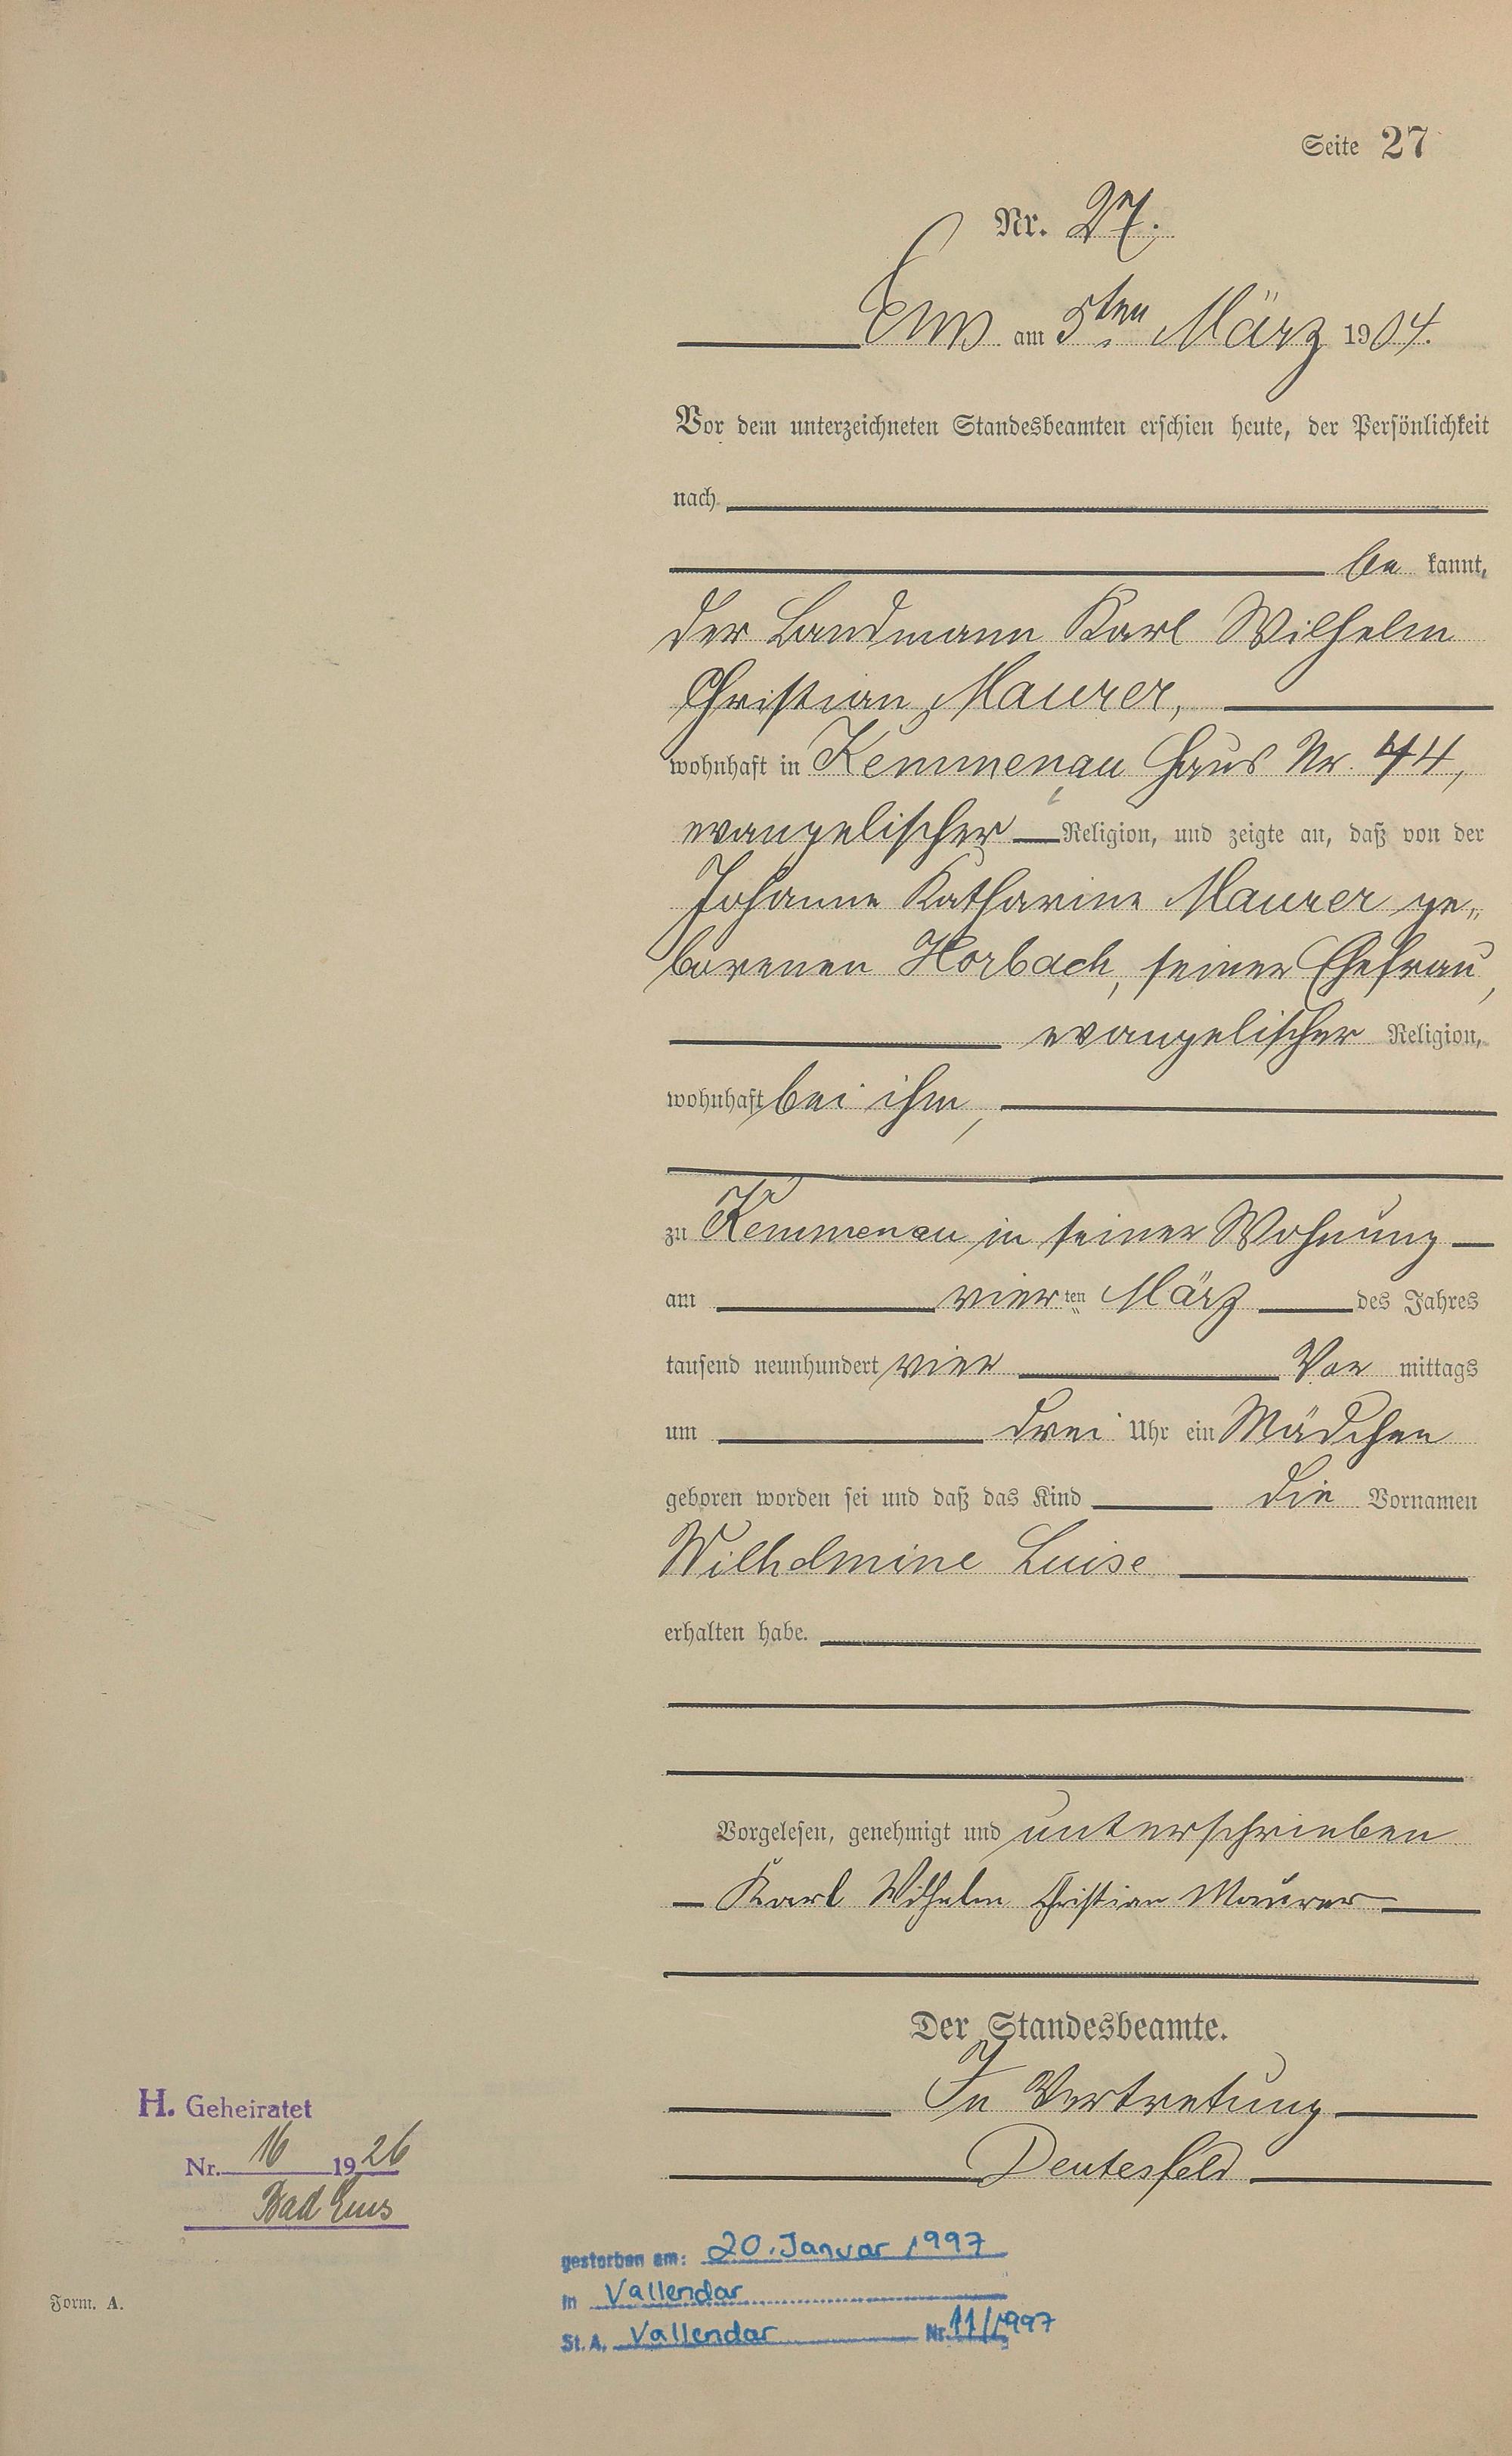 Seite 27
Nr. 27.
Ems am 5ten März 1904.
Vor dem unterzeichneten Standesbeamten erschien heute, der Persönlichkeit
nach
be kannt,
der Landmann Karl Wilhelm
Christian Maurer,
wohnhaft in Kemmenau Haus Nr. 44,
evangelischer Religion, und zeigte an, daß von der
Johanne Katharine Maurer ge„
borenen Horbach, seiner Ehefrau,
evangelischer Religion,
wohnhaft bei ihm,
zu Kemmenau in seiner Wohnung
am vierten März des Jahres
tausend neunhundert vier Vor mittags
um drei Uhr ein Mädchen
geboren worden sei und daß das Kind die Vornamen
Wilhelmine Luise
erhalten habe.
Vorgelesen, genehmigt und unterschrieben
Karl Wilhelm Christian Maurer
Der Standesbeamte.
In Vertretung
Deutesfeld
H. Geheiratet
Nr. 16 1926
Bad Ems
gestorben am: 20. Januar 1997
in Vallendar
St. A. Vallendar Nr. 11/1997
Form. A.